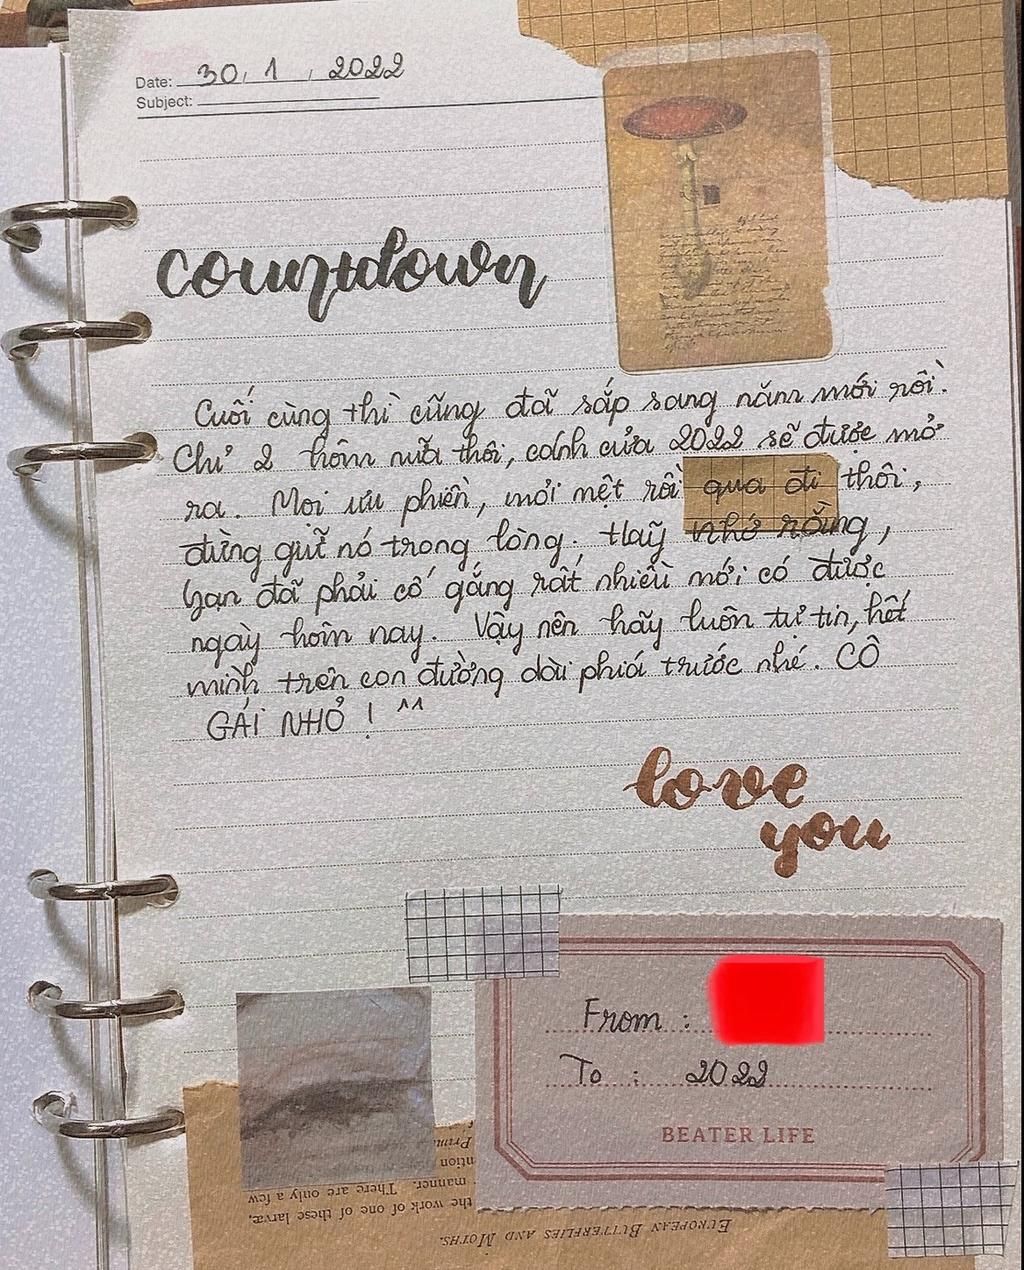 Date: 30, 1, 2022
Subject:
countdown
Cuối cùng thì cũng đã sắp sang năm mới rồi.
Chỉ 2 hôm nữa thôi, cánh cửa 2022 sẽ được mở
ra. Mọi ưu phiền, mỏi mệt rồi qua đi thôi,
đừng giữ nó trong lòng. Hãy nhớ rằng,
bạn đã phải cố gắng rất nhiều mới có được
ngày hôm nay. Vậy nên hãy luôn tự tin, hết
mình trên con đường dài phía trước nhé. CÔ
GÁI NHỎ ! ^^
love
you
From :
To : 2022
BEATER LIFE
EUROPEAN BUTTERFLIES AND MOTHS.
the work of one of these larvæ,
manner. There are only a few